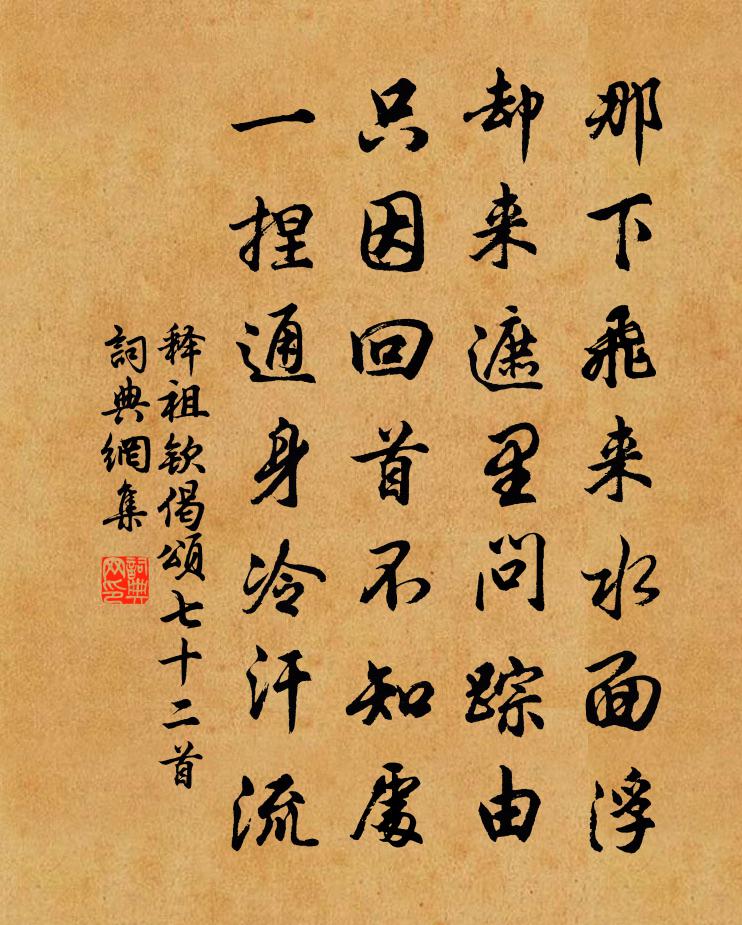 那下飛来水面浮
却来遮里问踪由
只因回首不知處
一捏通身冷汗流
释祖钦偈頌七十二首
詞典網集
詞典网印